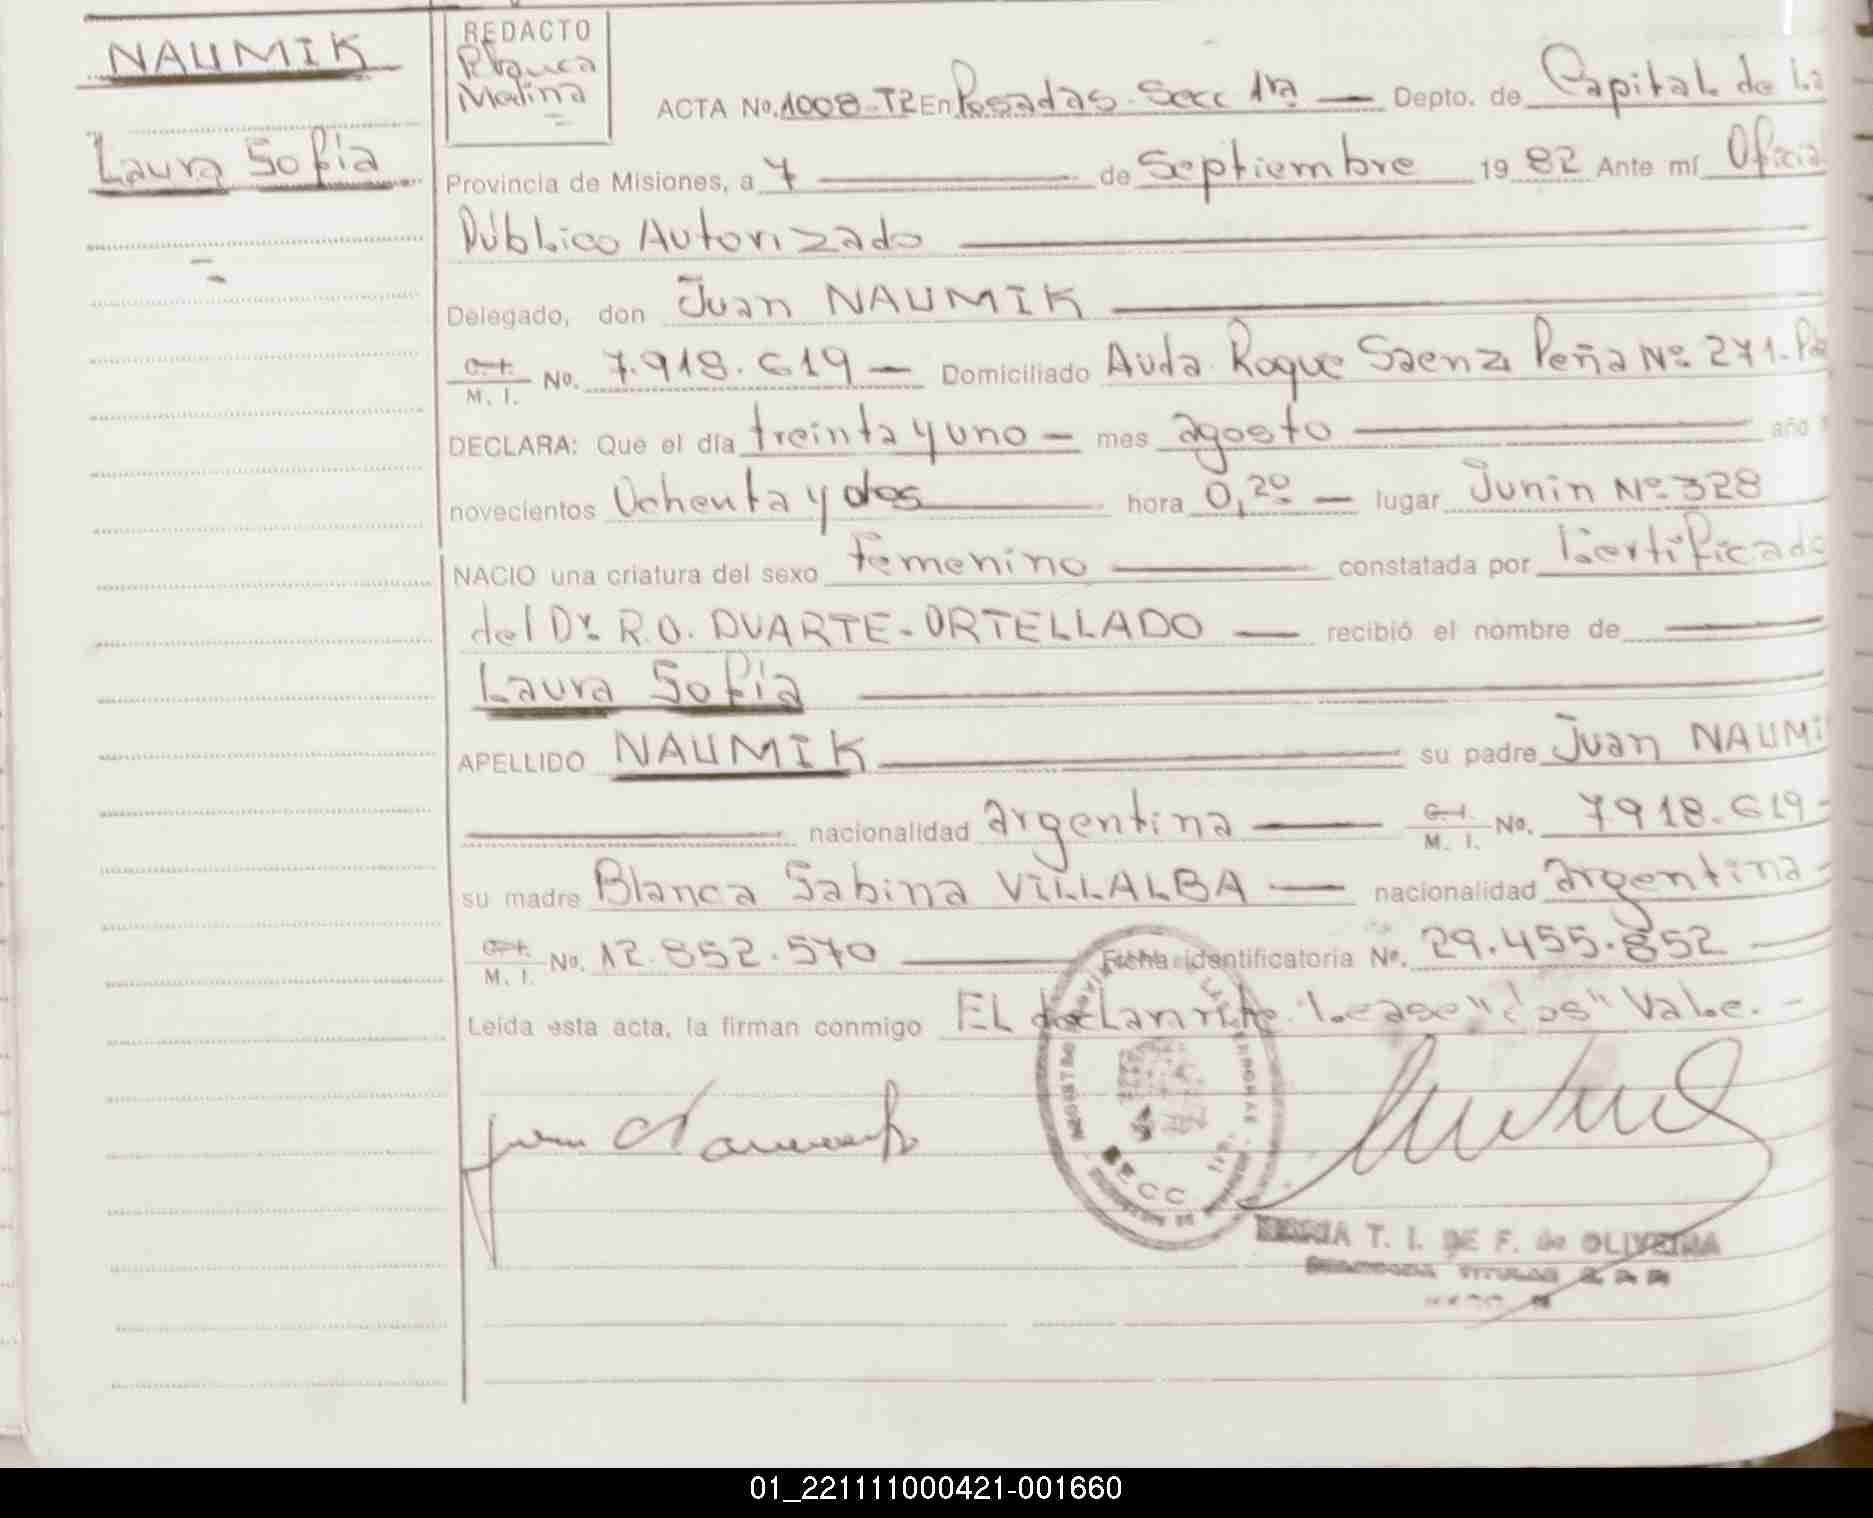 NAUMIK
Laura Sofía
REDACTO
Blanca
Molina
ACTA No. 1008-T2 En Posadas. Secc 1ra — Depto. de Capital de La
Provincia de Misiones, a 7 — de Septiembre 1982 Ante mí Oficial
Público Autorizado
Delegado, don Juan NAUMIK
C.I.
M. I. No. 7.918.619 — Domiciliado Avda. Roque Saenz Peña Nº 271.
DECLARA: Que el día treinta y uno — mes agosto — año
novecientos Ochenta y dos — hora 0,20 — lugar Junin Nº 328
NACIO una criatura del sexo Femenino — constatada por Certificado
del Dr. R.O. DUARTE-ORTELLADO — recibió el nombre de —
Laura Sofía
APELLIDO NAUMIK — su padre Juan NAUMI
— nacionalidad argentina — C.I.
M. I. No. 7.918.619-
su madre Blanca Sabina VILLALBA — nacionalidad argentina -
C.I.
M. I. No. 12.852.570 — Ficha identificatoria No. 29.455.852 —
Leída esta acta, la firman conmigo EL declarante. Lease "dos" Vale. -
SECC
MARIA T. I. DE F. de OLIVEIRA
01_221111000421-001660